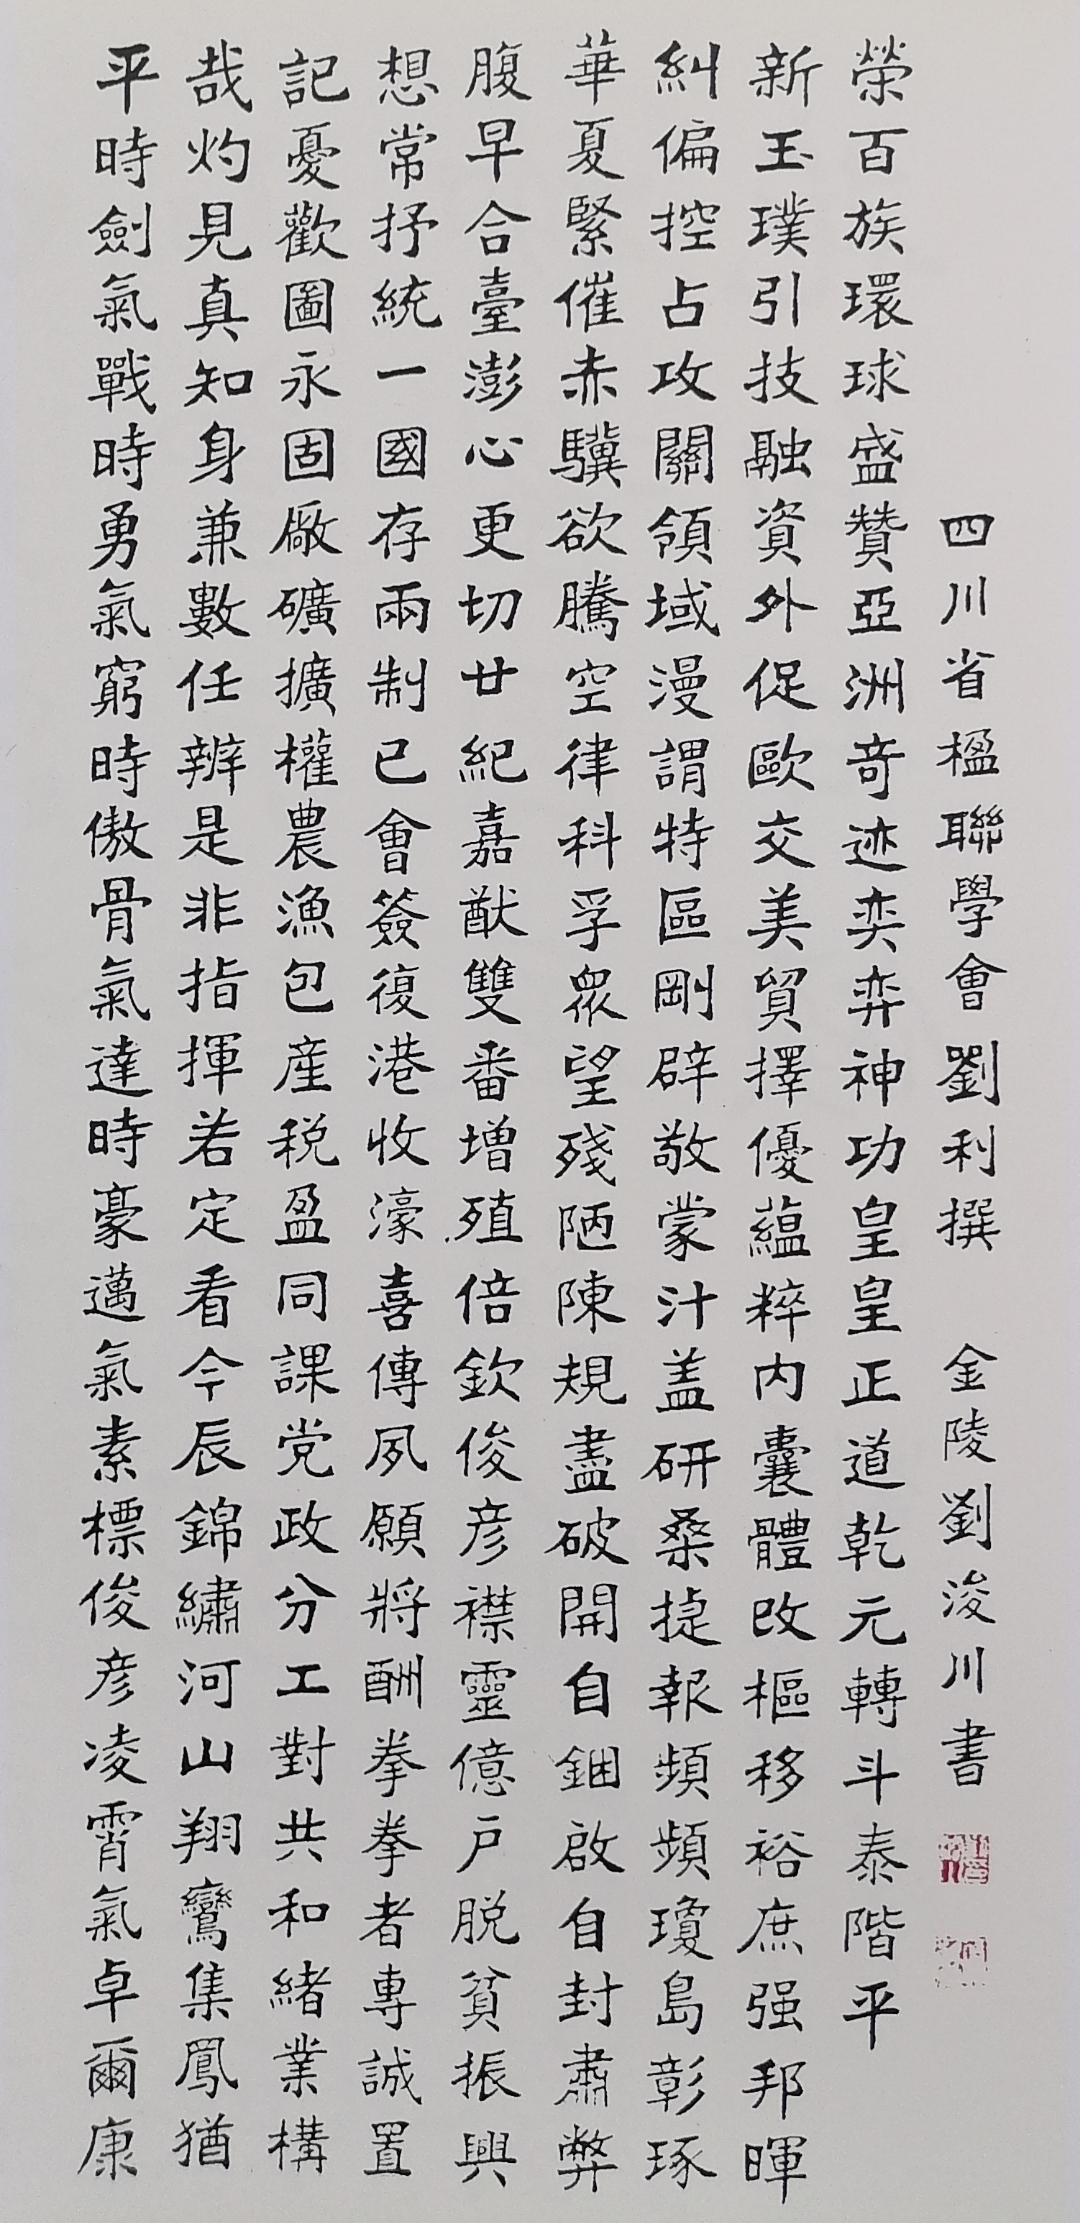 平時劍氣戰時勇氣窮時傲骨氣達時豪邁氣素標俊彥凌霄氣卓爾康
哉灼見真知身兼數任辨是非指揮若定看今辰錦繡河山翔鸞集鳳猶
記憂歡圖永固廠礦擴權農漁包産税盈同課党政分工對共和緒業構
想常抒統一國存兩制已會簽復港收濠喜傳夙願將酬拳拳者專誠置
腹早合臺澎心更切廿紀嘉猷雙番增殖倍欽俊彥襟靈億户脱貧振興
華夏緊催赤驥欲騰空律科孚眾望殘陋陳規盡破開自錮啟自封肅弊
糾偏控占攻關領域漫謂特區剛辟敬蒙汁盖研桑捷報頻頻瓊島彰琢
新玉璞引技融資外促歐交美貿擇優蘊粹内囊體改樞移裕庶强邦暉
榮百族環球盛贊亞洲奇迹奕弈神功皇皇正道乾元轉斗泰階平
四川省楹聯學會劉利撰 金陵劉浚川書